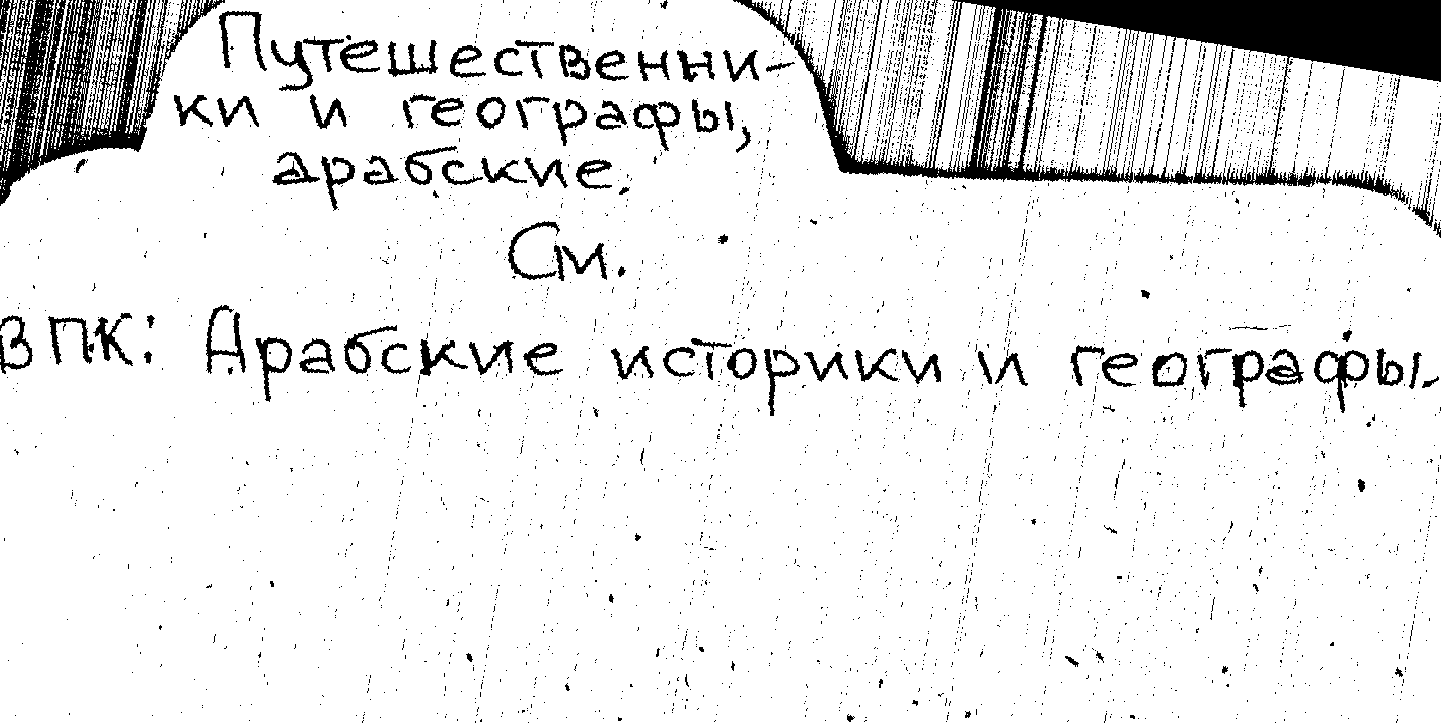 Путешественни-
ки и географы,
арабские.
См.
ВПК: Арабские историки и географы.